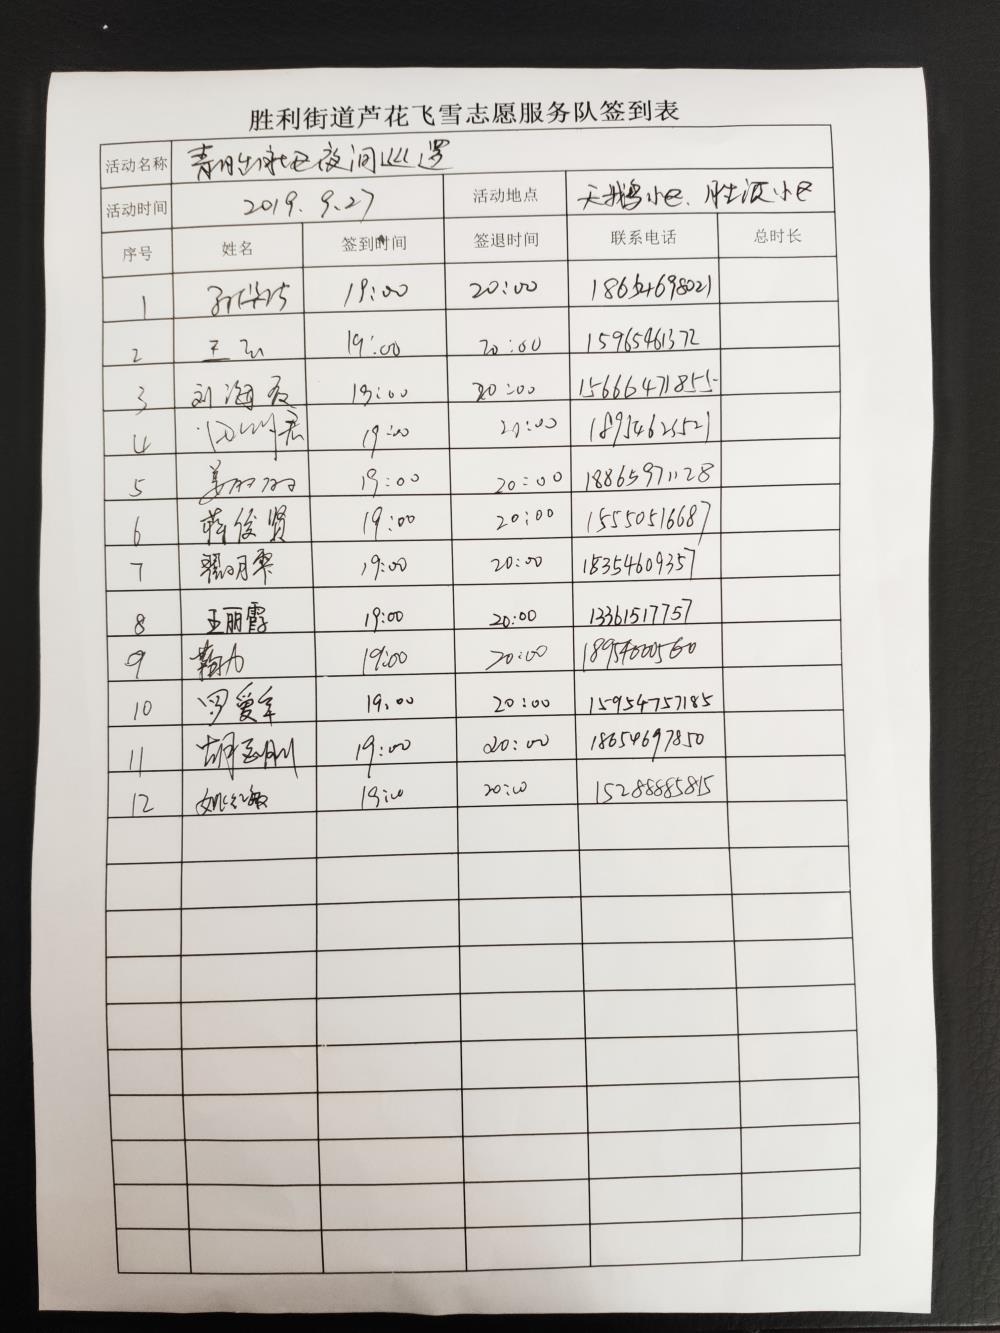 胜利街道芦花飞雪志愿服务队签到表
活动名称 青胜社区夜间巡逻
活动时间 2019.9.27 活动地点 天鹅小区、胜凉小区
序号 姓名 签到时间 签退时间 联系电话 总时长
1 19:00 20:00 18654698021
2 王 19:00 20:00 15965461372
3 刘海友 19:00 20:00 15666471855
4 19:00 20:00
5 姜丽丽 19:00 20:00 18865971128
6 蒋俊贤 19:00 20:00 15550516687
7 翟明翠 19:00 20:00 18354609357
8 王丽霞 19:00 20:00 13361517757
9 19:00 20:00 18954600560
10 罗爱军 19:00 20:00 15954757185
11 胡玉刚 19:00 20:00 18654697850
12 姚红敏 19:00 20:00 15288885815